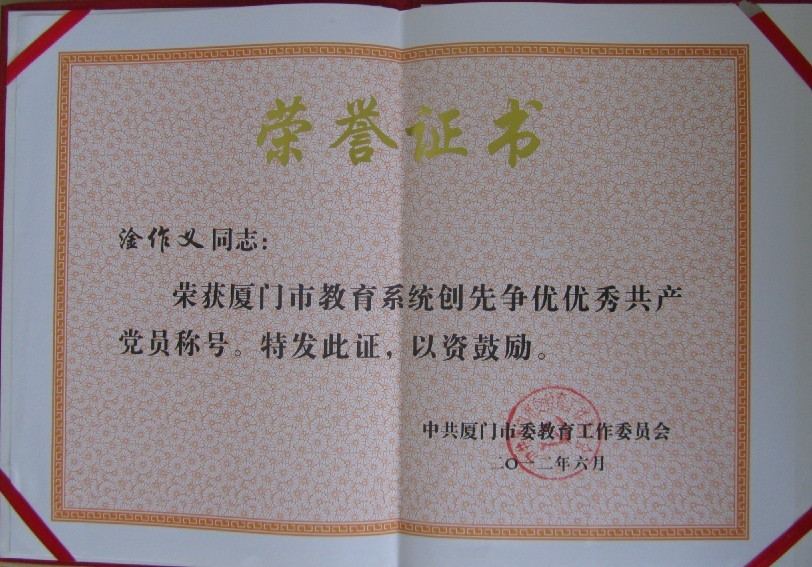 荣誉证书
淦作义同志：
荣获厦门市教育系统创先争优优秀共产
党员称号。特发此证，以资鼓励。
中共厦门市委教育工作委员会
二〇一二年六月